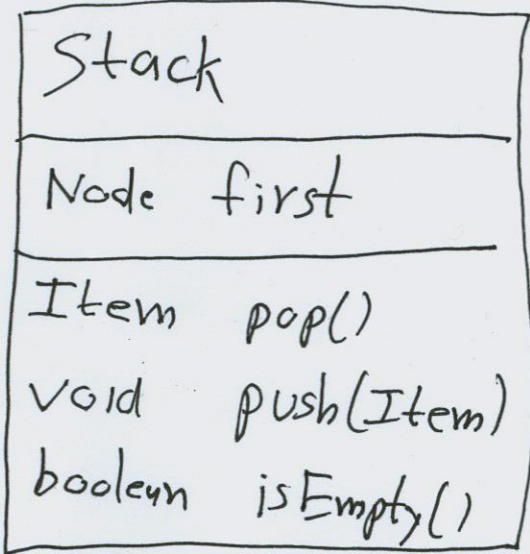 Stack
Node first
Item pop()
void push(Item)
boolean isEmpty()